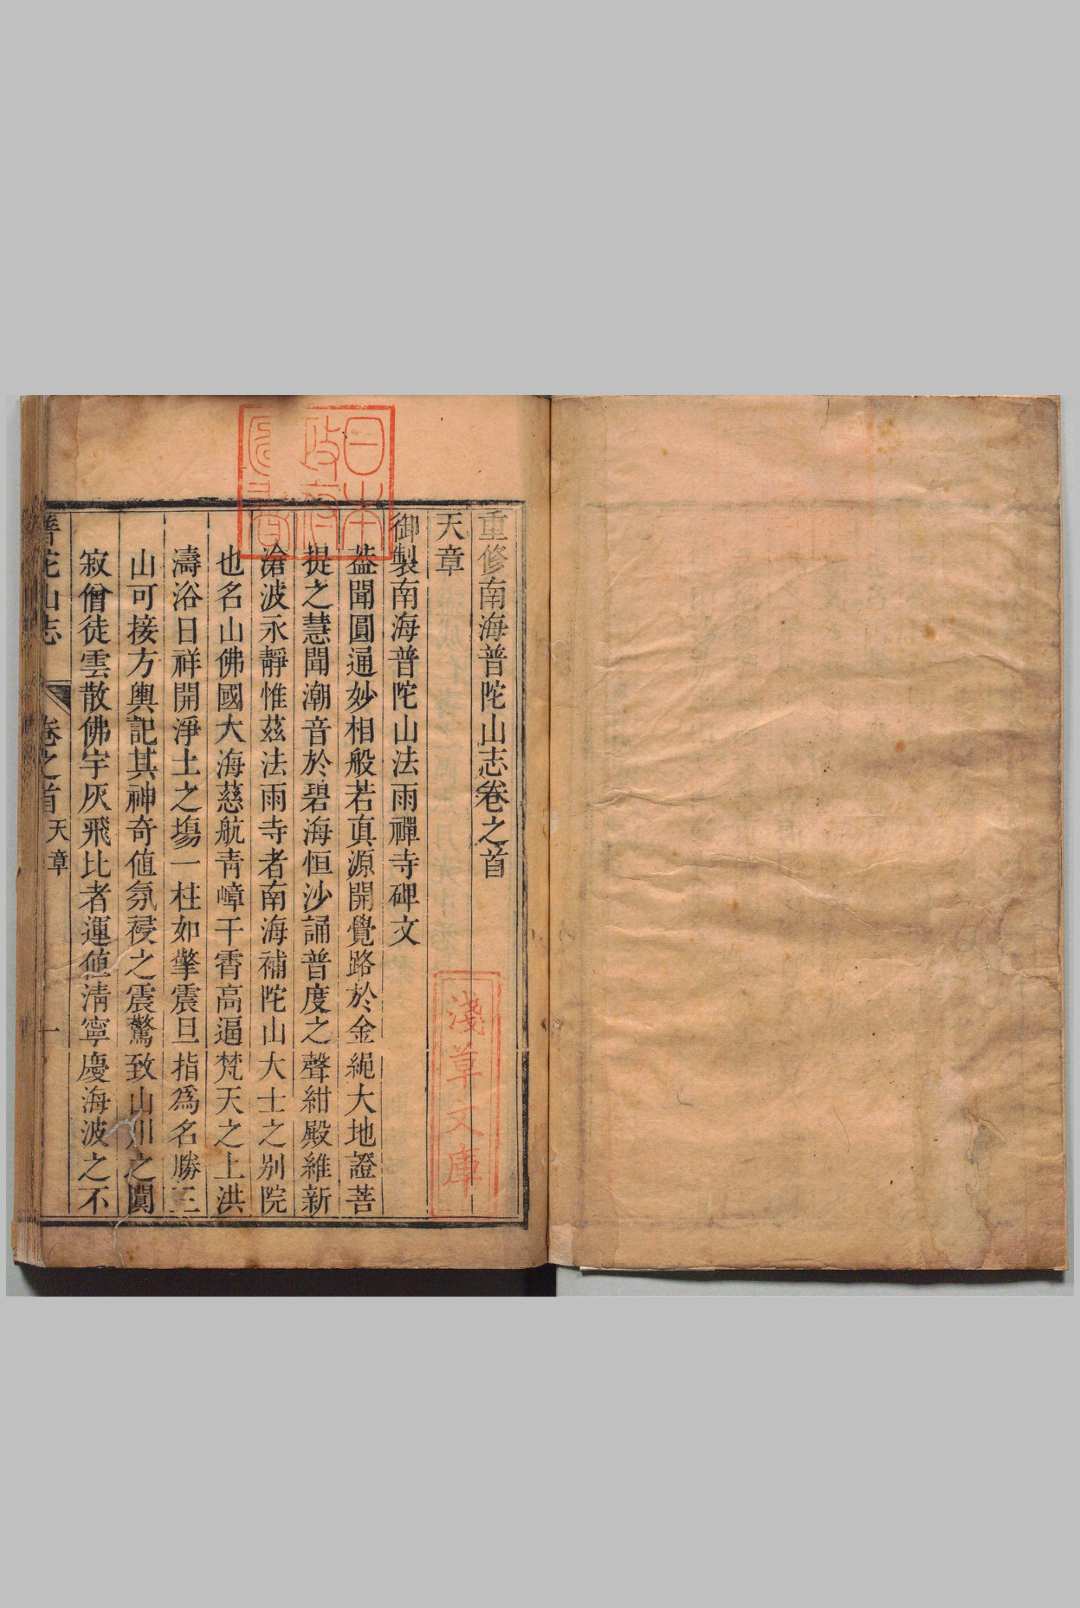 重修南海普陀山志卷之首
天章
御製南海普陀山法雨禪寺碑文
葢聞圓通妙相般若眞源開覺路於金繩大地證菩
提之慧聞潮音於碧海恒沙誦普度之聲紺殿維新
滄波永靜惟茲法雨寺者南海補陀山大士之別院
也名山佛國大海慈航靑嶂干霄高逼梵天之上洪
濤浴日祥開淨土之塲一柱如擎震旦指爲名勝三
山可接方輿記其神奇値氛祲之震驚致山川之闃
寂僧徒雲散佛宇灰飛比者運値淸寧慶海波之不
普陀山志
卷之首
天章
一
日本
政府
圖書
淺草文庫